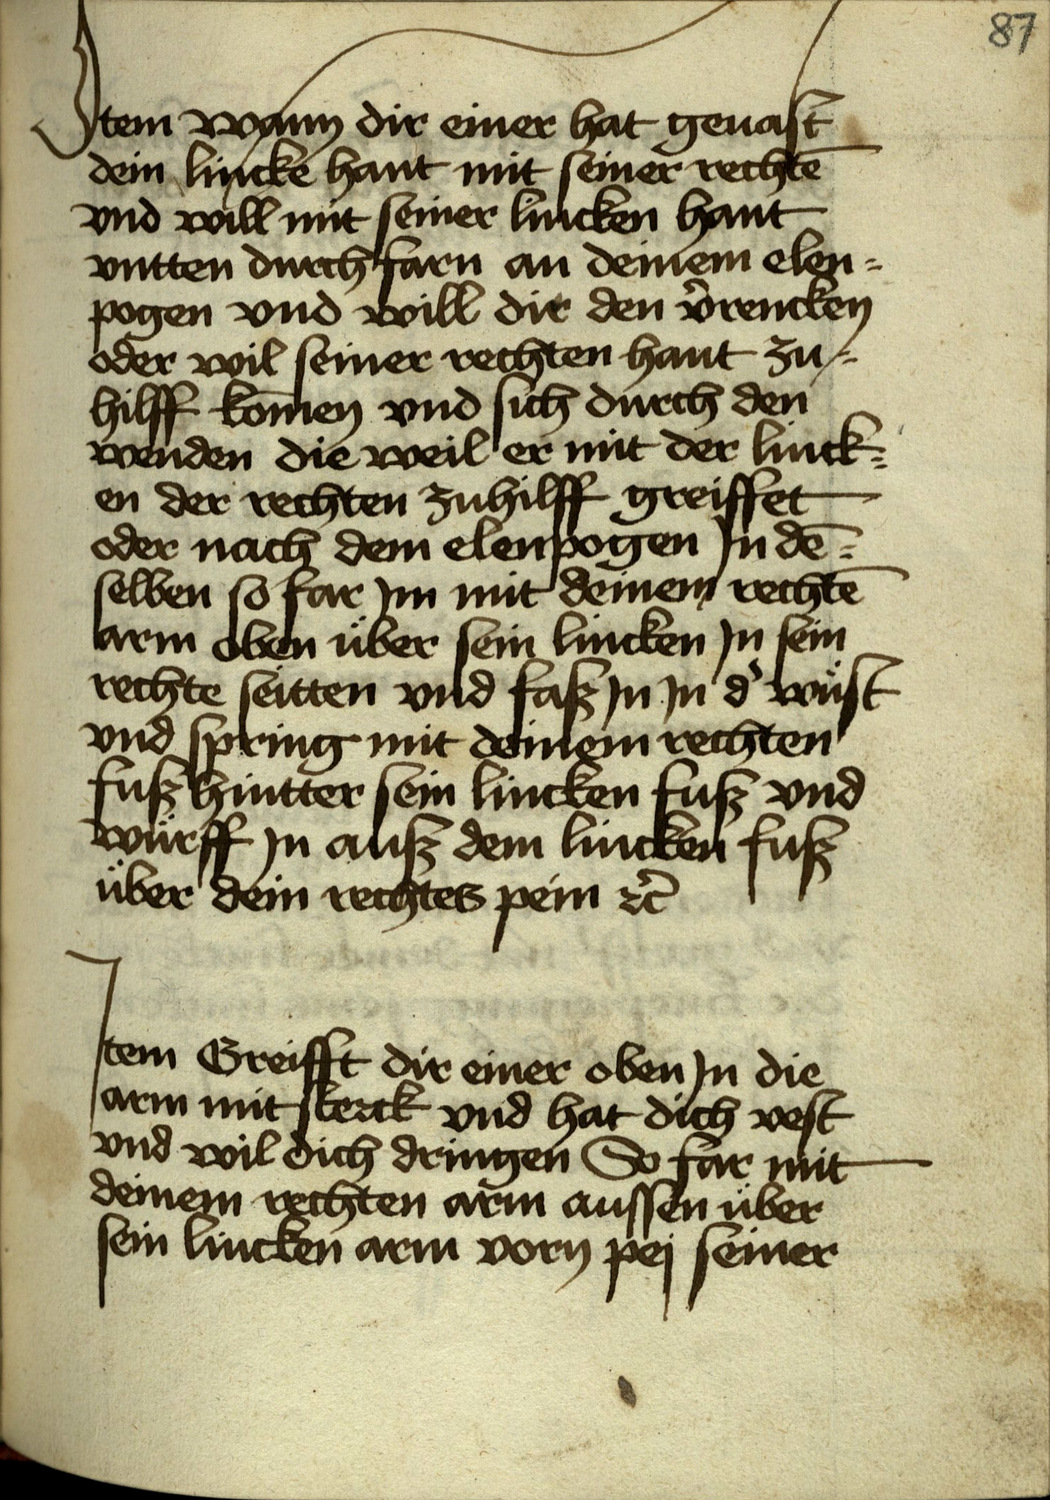 87
Item wann dir einer hat geuast
dein lincke hant mit seiner rechtē
vnd will mit seiner lincken hant
vntten durch farn an deinem elen=
pogen vnd will dir den v̉rencken
oder wil seiner rechten hant zu=
hilff kom̄en vnd sich durch den
wenden die weil er mit der linck=
en der rechten zuhilff greiffet
oder nach dem elenpogen Jn dē=
selben so far Jm mit deinem rechtē
arm oben über sein lincken Jn sein
rechte seitten vnd faß Jn Jn d̉ wüst
vnd spring mit deinem rechten
fuß hintter sein lincken fuß vnd
würff Jn auß dem lincken fuß
über dein rechtes pein ꝛc̉
Item Greifft dir einer oben Jn die
arm mit sterck vnd hat dich vest
vnd wil dich dringen So far mit
deinem rechten arm aussen über
sein lincken arm vorn pej seiner